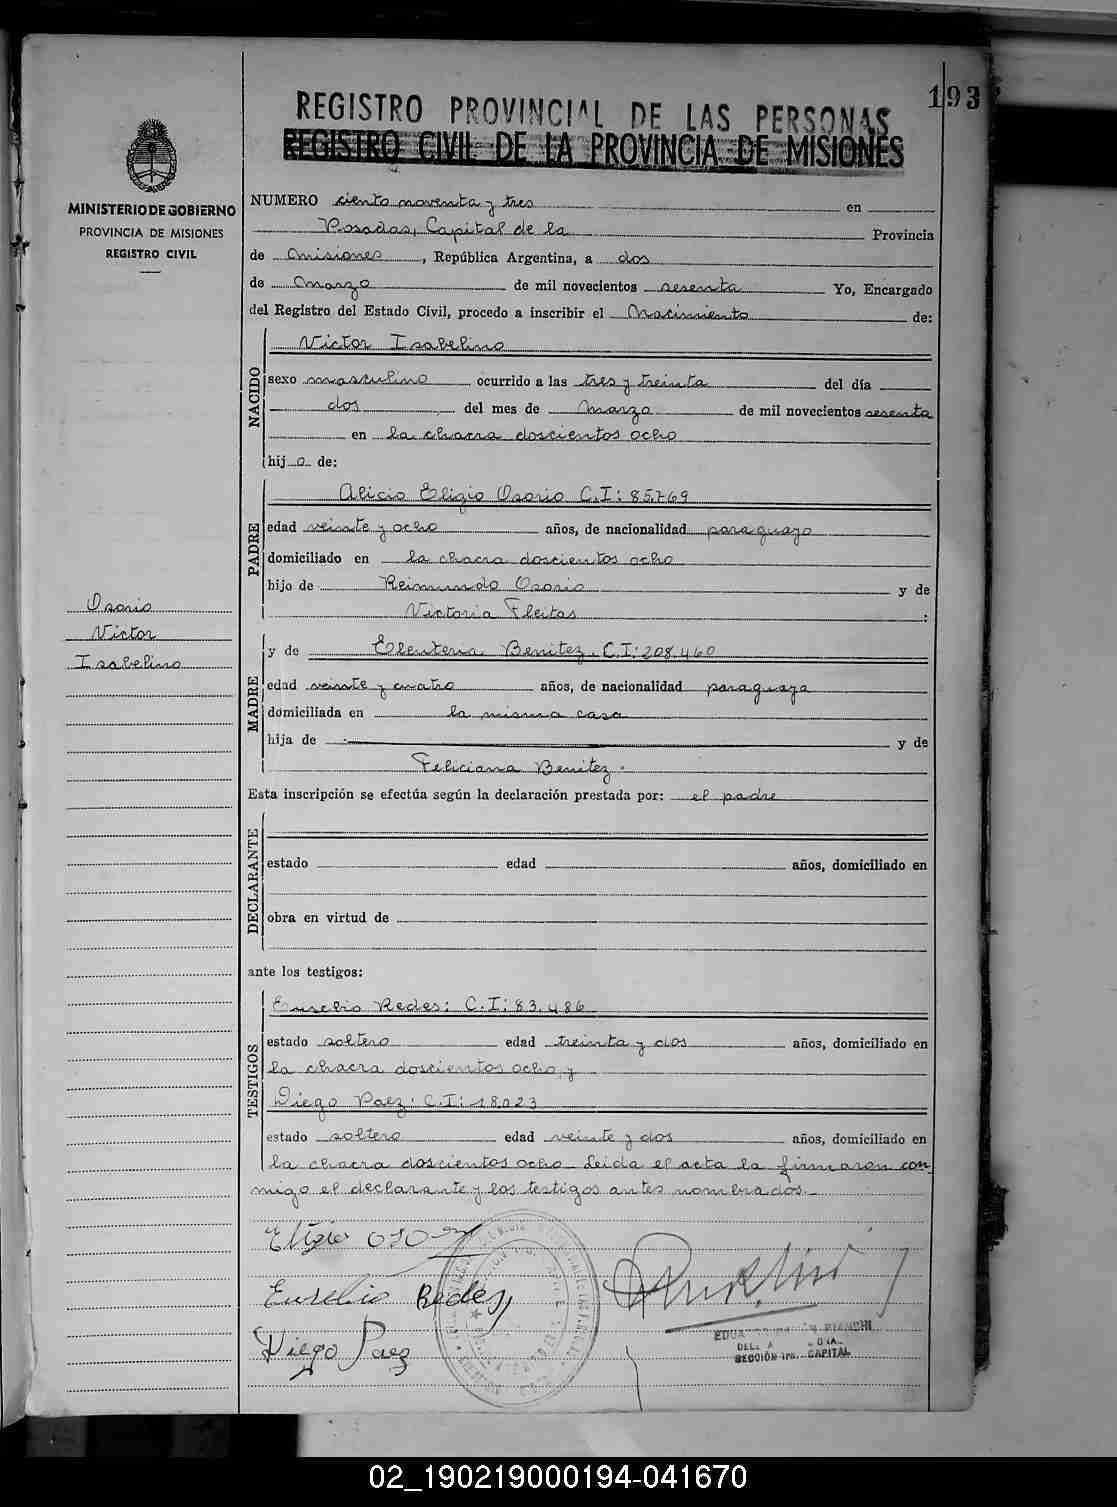 193
REGISTRO PROVINCIAL DE LAS PERSONAS
REGISTRO CIVIL DE LA PROVINCIA DE MISIONES
MINISTERIO DE GOBIERNO
PROVINCIA DE MISIONES
REGISTRO CIVIL
NUMERO ciento noventa y tres en
Posadas, Capital de la Provincia
de Misiones, República Argentina, a dos
de Marzo de mil novecientos sesenta Yo, Encargado
del Registro del Estado Civil, procedo a inscribir el Nacimiento de:
NACIDO
Victor Isabelino
sexo masculino ocurrido a las tres y treinta del día
dos del mes de Marzo de mil novecientos sesenta
en la chacra doscientos ocho
hijo de:
PADRE
Alicio Eligio Osorio C.I: 85.769
edad veinte y ocho años, de nacionalidad paraguayo
domiciliado en la chacra doscientos ocho
hijo de Reimundo Osorio y de
Victoria Fleitas :
Osorio
Victor
Isabelino
MADRE
y de Eleuteria Benitez. C.I: 208.460
edad veinte y cuatro años, de nacionalidad paraguaya
domiciliada en la misma casa
hija de y de
Feliciana Benitez.
Esta inscripción se efectúa según la declaración prestada por: el padre
DECLARANTE
estado edad años, domiciliado en
obra en virtud de
ante los testigos:
TESTIGOS
Eusebio Redes: C.I: 83.486
estado soltero edad treinta y dos años, domiciliado en
la chacra doscientos ocho, y
Diego Paez. C.I: 18.023
estado soltero edad veinte y dos años, domiciliado en
la chacra doscientos ocho. Leida el acta la firmaron con
migo el declarante y los testigos antes nombrados.
Eligio
Eusebio Redes
Diego Paez
BIANCHI
SECCIÓN 1ra. CAPITAL
02_190219000194-041670